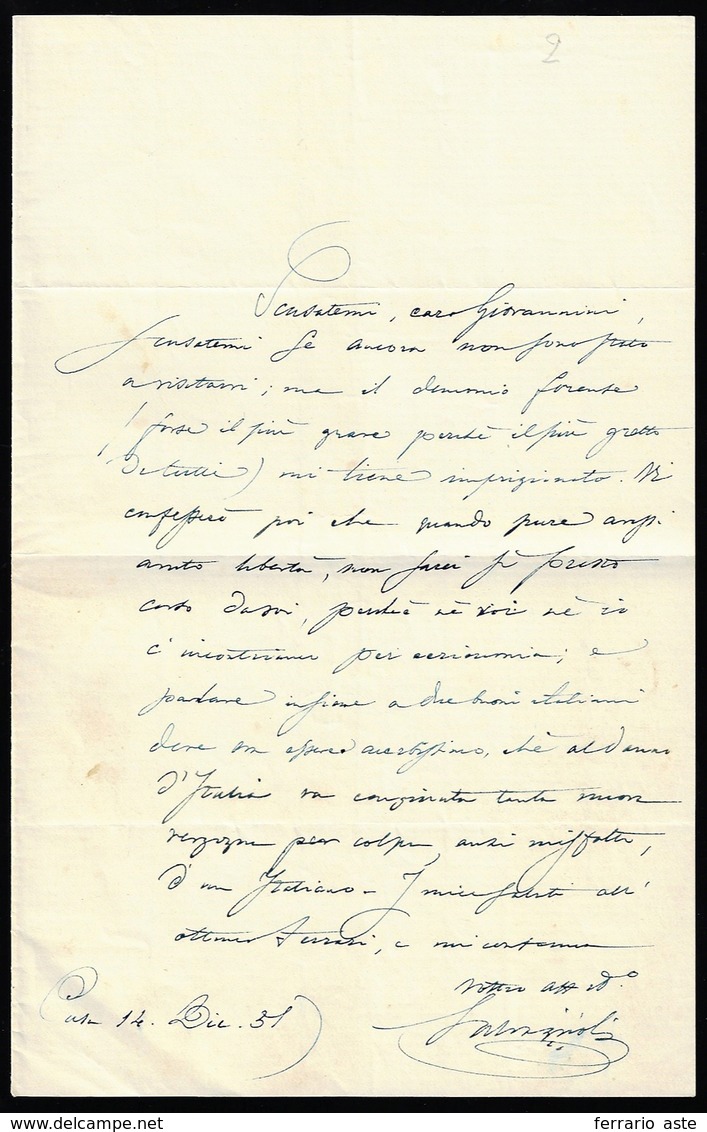 2
Scusatemi, caro Giovannini,
scusatemi se ancora non sono stato
a visitarvi; ma il demonio forense
(forse il più grave perché il più gretto
di tutti) mi tiene imprigionato. Vi
confesserò poi che quando pure avessi
avuto libertà, non sarei sì presto
corso da voi, perché nè voi nè io
c'incontriamo per cerimonia; e
parlare insieme a due buoni italiani
deve ora essere acerbissimo, chè al danno
d'Italia va congiunta tanta nuova
vergogna per colpa, anzi misfatto,
d'un Italiano - I miei saluti all'
ottimo Ferrari, e mi confermo
vostro aff.
Casa 14. Dic. 51
Salvagnoli
ferrario aste